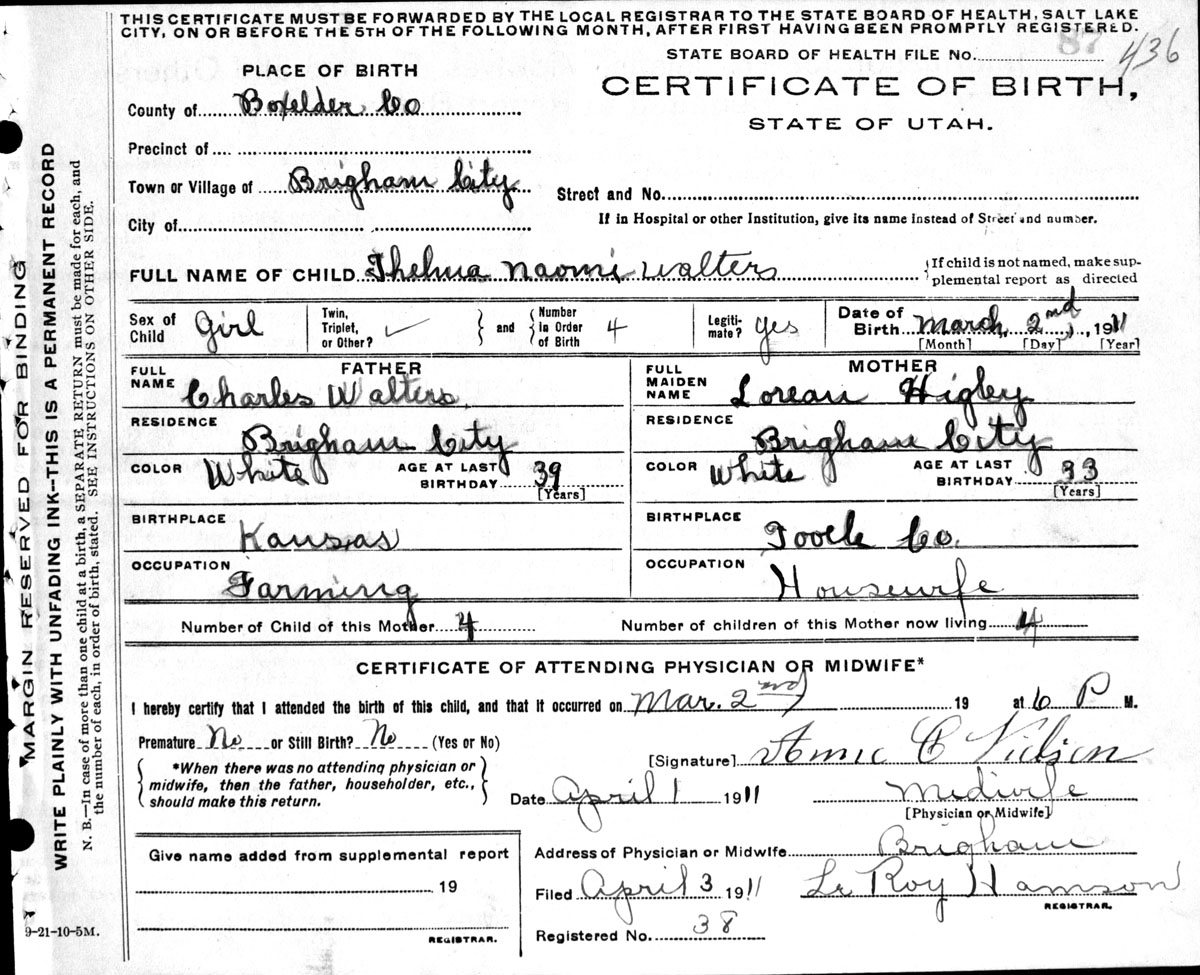 THIS CERTIFICATE MUST BE FORWARDED BY THE LOCAL REGISTRAR TO THE STATE BOARD OF HEALTH, SALT LAKE
CITY, ON OR BEFORE THE 5TH OF THE FOLLOWING MONTH, AFTER FIRST HAVING BEEN PROMPTLY REGISTERED.
87
STATE BOARD OF HEALTH FILE No. 436
PLACE OF BIRTH
CERTIFICATE OF BIRTH,
STATE OF UTAH.
County of Boxelder Co
Precinct of
Town or Village of Brigham City
Street and No.
City of
If in Hospital or other Institution, give its name instead of Street and number.
FULL NAME OF CHILD Thelma Naomi Walters
If child is not named, make sup-
plemental report as directed
Sex of Child Girl
Twin, Triplet, or Other? ✓
and
Number in Order of Birth 4
Legiti-mate? yes
Date of Birth March 2nd, 1911
[Month] [Day] [Year]
FATHER
FULL NAME Charles Walters
RESIDENCE Brigham City
COLOR White AGE AT LAST BIRTHDAY 39
[Years]
BIRTHPLACE Kansas
OCCUPATION Farming
MOTHER
FULL MAIDEN NAME Lorean Higley
RESIDENCE Brigham City
COLOR White AGE AT LAST BIRTHDAY 33
[Years]
BIRTHPLACE Tooele Co.
OCCUPATION Housewife
Number of Child of this Mother 4 Number of children of this Mother now living 4
CERTIFICATE OF ATTENDING PHYSICIAN OR MIDWIFE*
I hereby certify that I attended the birth of this child, and that it occurred on Mar. 2nd 19 at 6 P M.
Premature No or Still Birth? No (Yes or No)
*When there was no attending physician or
midwife, then the father, householder, etc.,
should make this return.
[Signature] Annie C Nielsen
Date April 1 1911 Midwife
[Physician or Midwife]
Give name added from supplemental report
19
REGISTRAR.
Address of Physician or Midwife Brigham
Filed April 3 1911 Le Roy
REGISTRAR.
Registered No. 38
MARGIN RESERVED FOR BINDING
WRITE PLAINLY WITH UNFADING INK--THIS IS A PERMANENT RECORD
N. B.—In case of more than one child at a birth, a SEPARATE RETURN must be made for each, and
the number of each, in order of birth, stated. SEE INSTRUCTIONS ON OTHER SIDE.
9-21-10-5M.